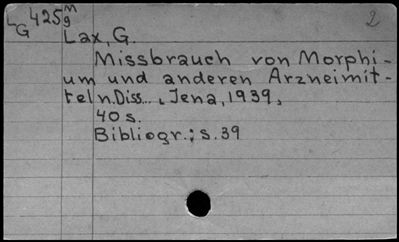 LG 425 9M
2
Lax, G.
Missbrauch von Morphi-
um und anderen Arzneimit-
teln. Diss... , Jena, 1939,
40 s.
Bibliogr.; s. 39